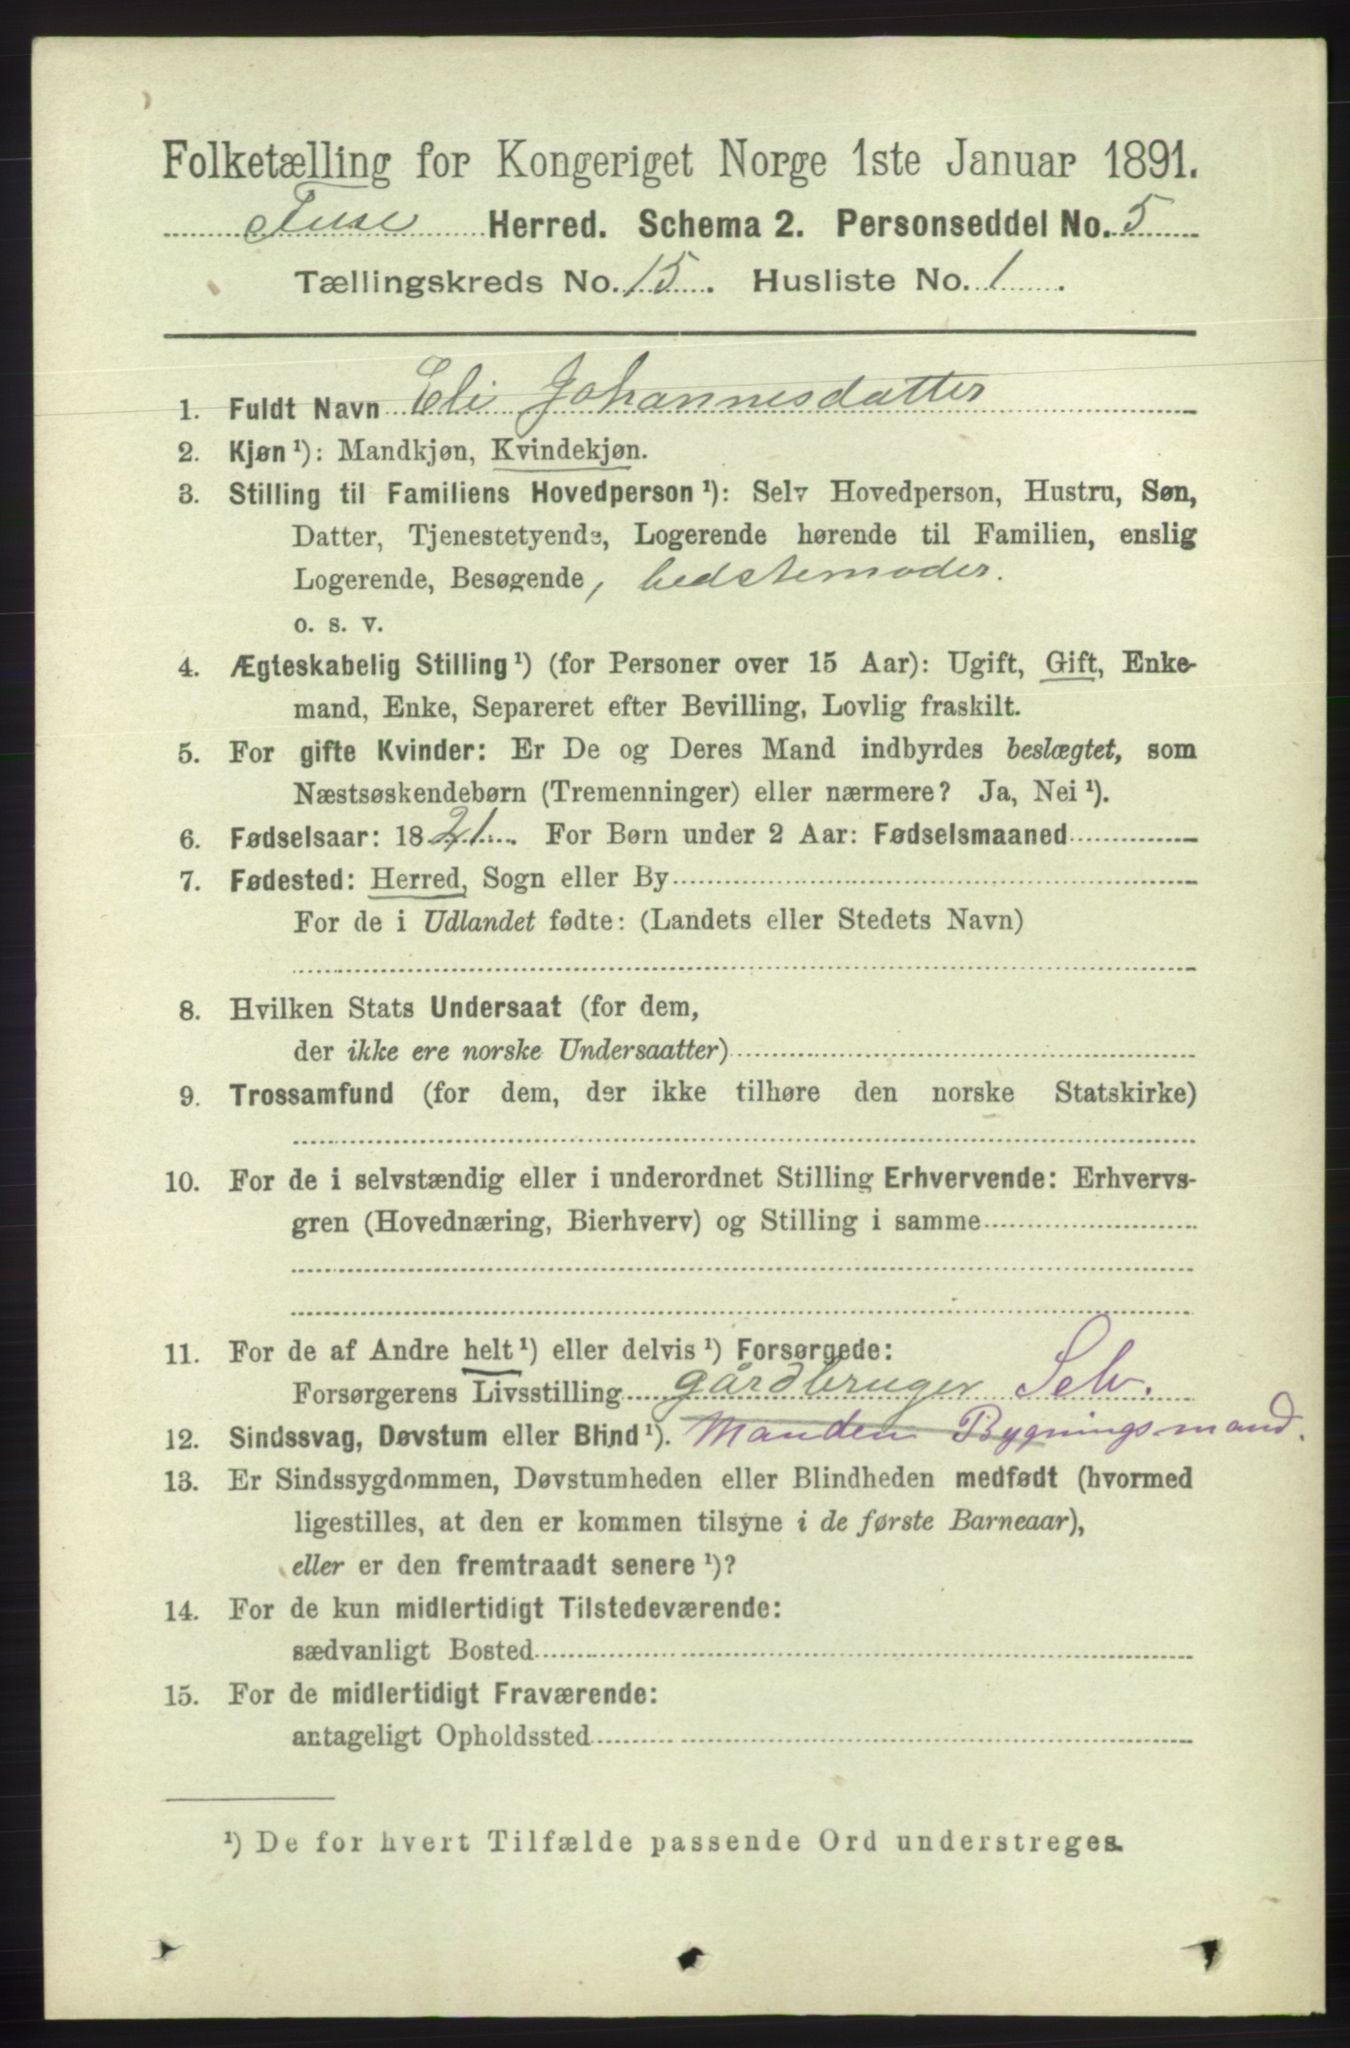 Folketælling for Kongeriget Norge 1ste Januar 1891.
Fuse Herred. Schema 2. Personseddel No. 5
Tællingskreds No. 15. Husliste No. 1.
1. Fuldt Navn Eli Johannesdatter
2. Kjøn¹): Mandkjøn, Kvindekjøn.
3. Stilling til Familiens Hovedperson¹): Selv Hovedperson, Hustru, Søn,
Datter, Tjenestetyende, Logerende hørende til Familien, enslig
Logerende, Besøgende, bedstemoder.
o. s. v.
4. Ægteskabelig Stilling¹) (for Personer over 15 Aar): Ugift, Gift, Enke-
mand, Enke, Separeret efter Bevilling, Lovlig fraskilt.
5. For gifte Kvinder: Er De og Deres Mand indbyrdes beslægtet, som
Næstsøskendebørn (Tremenninger) eller nærmere? Ja, Nei¹).
6. Fødselsaar: 1821. For Børn under 2 Aar: Fødselsmaaned
7. Fødested: Herred, Sogn eller By
For de i Udlandet fødte: (Landets eller Stedets Navn)
8. Hvilken Stats Undersaat (for dem,
der ikke ere norske Undersaatter)
9. Trossamfund (for dem, der ikke tilhøre den norske Statskirke)
10. For de i selvstændig eller i underordnet Stilling Erhvervende: Erhvervs-
gren (Hovednæring, Bierhverv) og Stilling i samme
11. For de af Andre helt¹) eller delvis¹) Forsørgede:
Forsørgerens Livsstilling gårdbruger Selv.
12. Sindssvag, Døvstum eller Blind¹). Manden Bygningsmand.
13. Er Sindssygdommen, Døvstumheden eller Blindheden medfødt (hvormed
ligestilles, at den er kommen tilsyne i de første Barneaar),
eller er den fremtraadt senere¹)?
14. For de kun midlertidigt Tilstedeværende:
sædvanligt Bosted
15. For de midlertidigt Fraværende:
antageligt Opholdssted
¹) De for hvert Tilfælde passende Ord understreges.